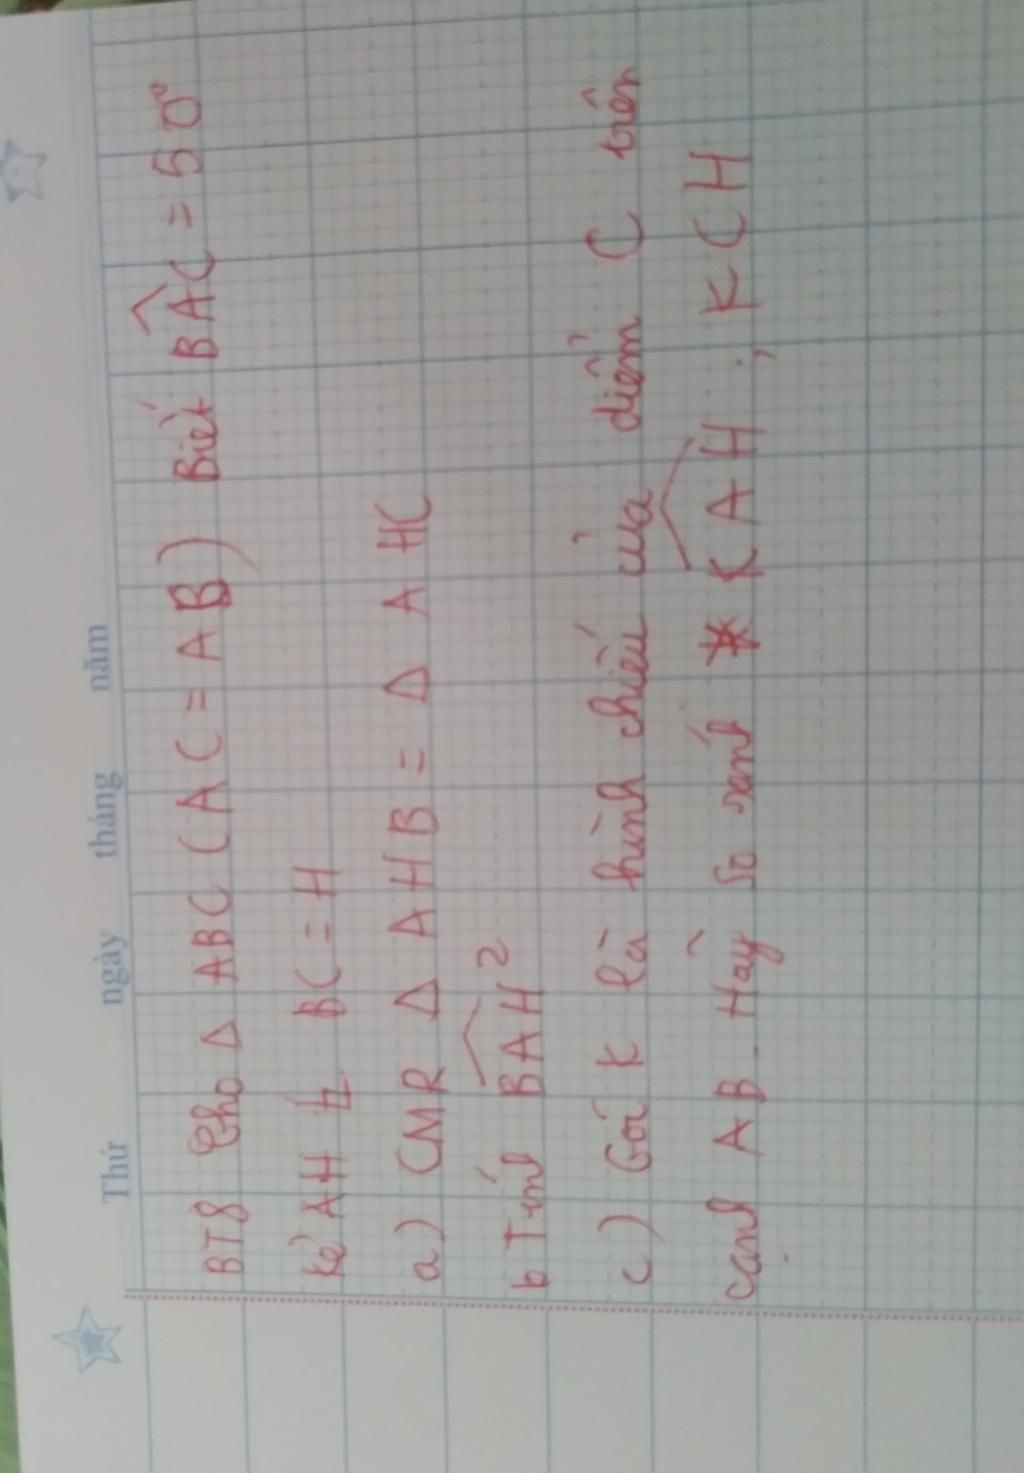 Thứ ngày tháng năm
BT8 Cho Δ ABC (AC = AB) Biết BAC = 50°
Kẻ AH ⊥ BC = H
a) CMR Δ AHB = Δ AHC
b Tính BAH?
c) Gọi K là hình chiếu của điểm C trên
cạnh AB. Hãy so sánh KAH; KCH